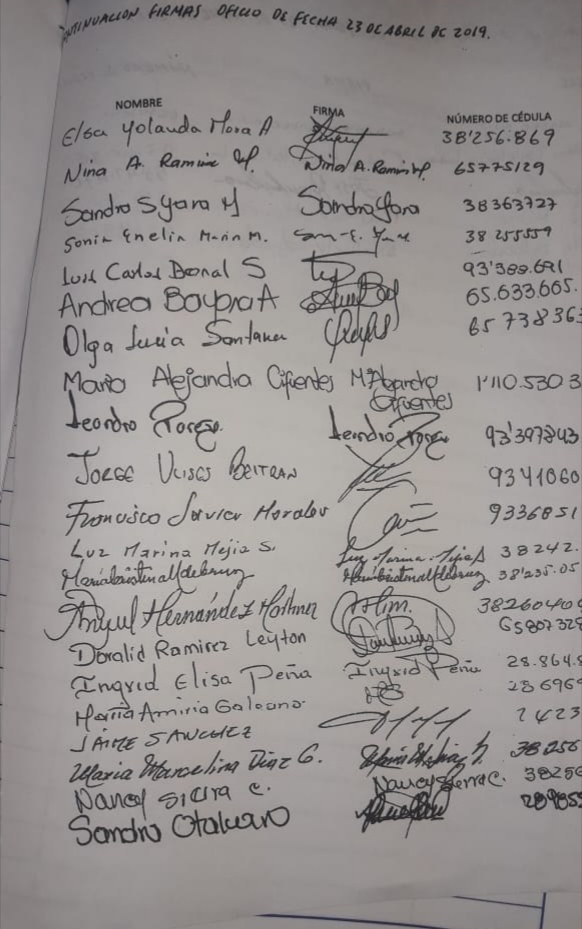 CONTINUACION FIRMAS OFICIO DE FECHA 23 DE ABRIL DE 2019.
NOMBRE FIRMA NÚMERO DE CÉDULA
Elsa Yolanda Mora A 38'256.869
Nina A. Ramirez Nina A. Ramirez 65775129
Sandra Syara M Sandra Syara 38363727
Sonia Enelia Marin M. 38 255559
Luis Carlos Bonal S 93'389.691
Andrea Bayona A 65.633.605.
Olga Lucia Santana 65 738 363
Maria Alejandra Cifuentes Mª Alejandra Cifuentes 1'110.530 3
Leandro Leandro 93'397843
JORGE ULISES BELTRAN 9341060
Francisco Javier Morales 9336851
Luz Marina Mejia S. Luz Marina Mejia S 38242.
38'235.05
Hernández 38260400
Doralid Ramirez Leyton 65807328
Ingrid Elisa Peña Ingrid Peña 28.864.8
Maria Amiria Galeano. 286969
JAIME SANCHEZ 1423
Maria Marcelina Diaz G. 38256
Nancy Sierra C. Nancy Sierra C. 38256
Sandra Otalvaro 289855